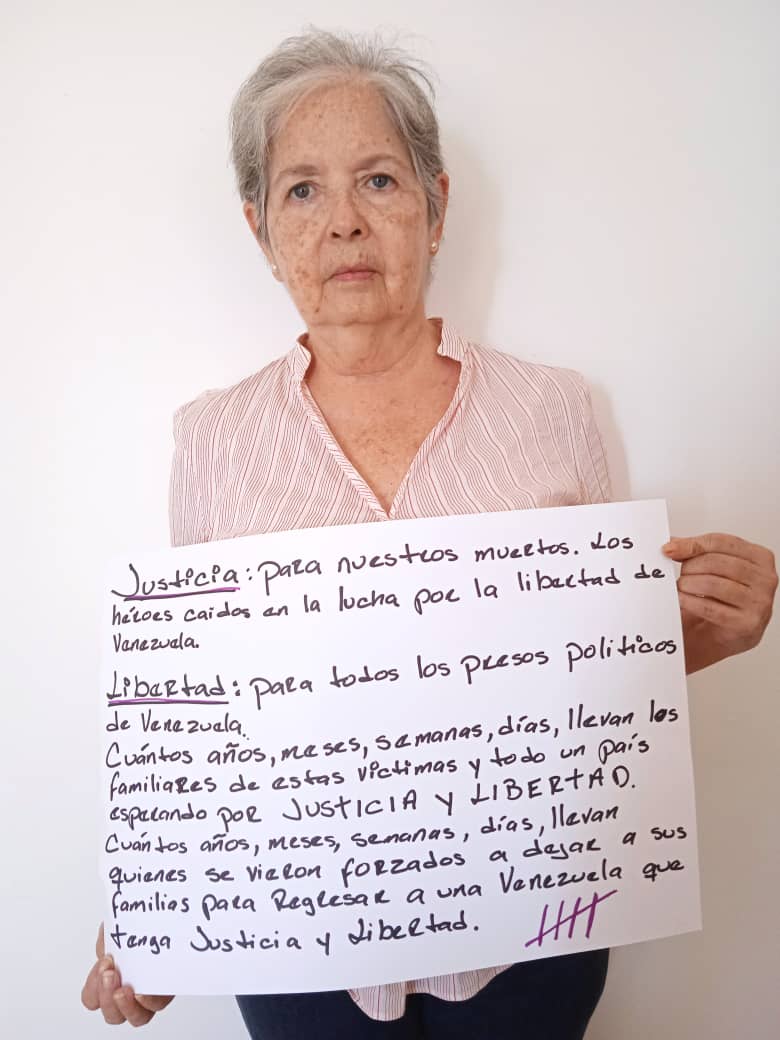 Justicia: para nuestros muertos. Los
héroes caidos en la lucha por la libertad de
Venezuela.
Libertad: para todos los presos politicos
de Venezuela.
Cuántos años, meses, semanas, días, llevan los
familiares de estas víctimas y todo un país
esperando por JUSTICIA y LIBERTAD.
Cuántos años, meses, semanas, días, llevan
quienes se vieron forzados a dejar a sus
familias para Regresar a una Venezuela que
tenga Justicia y Libertad.